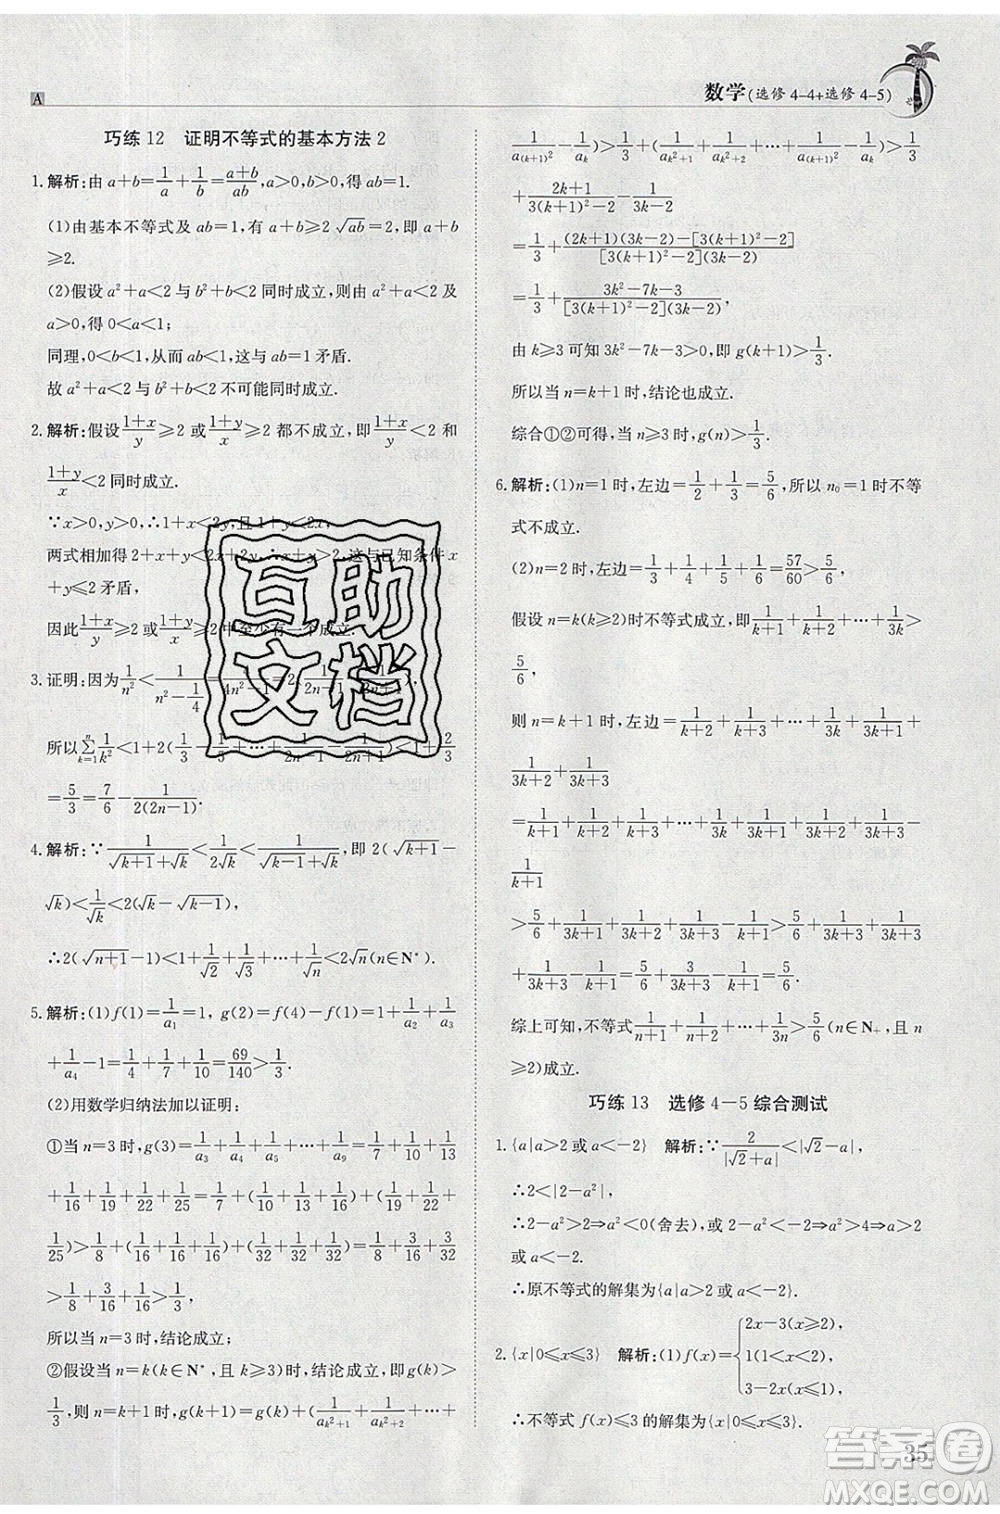 A
数学(选修4-4+选修4-5)
巧练12 证明不等式的基本方法2
1.解析:由a+b=1/a+1/b=(a+b)/ab,a>0,b>0,得ab=1.
(1)由基本不等式及ab=1,有a+b≥2√ab=2,即a+b
≥2.
(2)假设a²+a<2与b²+b<2同时成立,则由a²+a<2及
a>0,得0<a<1;
同理,0<b<1,从而ab<1,这与ab=1矛盾.
故a²+a<2与b²+b<2不可能同时成立.
2.解析:假设(1+x)/y≥2或(1+y)/x≥2都不成立,即(1+x)/y<2和
(1+y)/x<2同时成立.
∵x>0,y>0,∴1+x<2y,且1+y<2x,
两式相加得2+x+y<2x+2y,这与已知条件x
+y>2矛盾,
因此(1+x)/y≥2或(1+y)/x≥2中至少有一个成立.
3.证明:因为1/n²<1/(n²-1/4)=4/(4n²-1)
所以∑(k=1,n)1/k²<1+2(1/3-1/5+…+1/(2n-1)-1/(2n+1))<1+2/3
=5/3=7/6-1/2(2n-1).
4.解析:∵1/(√(k+1)+√k)<1/(2√k)<1/(√k+√(k-1)),即2(√(k+1)-
√k)<1/√k<2(√k-√(k-1)),
∴2(√(n+1)-1)<1+1/√2+1/√3+…+1/√n<2√n(n∈N*).
5.解析:(1)f(1)=1/a₁=1,g(2)=f(4)-f(1)=1+1/a₂+1/a₃
+1/a₄-1=1/4+1/7+1/10=69/140>1/3.
(2)用数学归纳法加以证明:
①当n=3时,g(3)=1/a₃+1/a₄+1/a₅+…+1/a₉=1/7+1/10+
1/13+1/16+1/19+1/22+1/25=1/7+(1/10+1/13+1/16)+(1/19+1/22+
1/25)>1/8+(1/16+1/16+1/16)+(1/32+1/32+1/32)=1/8+3/16+3/32>
1/8+3/16+1/16>1/3,
所以当n=3时,结论成立;
②假设当n=k(k∈N*,且k≥3)时,结论成立,即g(k)>
1/3,则当n=k+1时,g(k+1)=g(k)+(1/a_(k²+1)+1/a_(k²+2)+…+
1/a_(k+1)²-1/a_k)>1/3+(1/a_(k²+1)+1/a_(k²+2)+…+1/a_(k+1)²-1/a_k)>1/3
+(2k+1)/(3(k+1)²-2)-1/(3k-2)
=1/3+((2k+1)(3k-2)-[3(k+1)²-2])/([3(k+1)²-2](3k-2))
=1/3+(3k²-7k-3)/([3(k+1)²-2](3k-2)),
由k≥3可知3k²-7k-3>0,即g(k+1)>1/3.
所以当n=k+1时,结论也成立.
综合①②可得,当n≥3时,g(n)>1/3.
6.解析:(1)n=1时,左边=1/2+1/3=5/6,所以n₀=1时不等
式不成立.
(2)n=2时,左边=1/3+1/4+1/5+1/6=57/60>5/6,
假设n=k(k≥2)时不等式成立,即1/(k+1)+1/(k+2)+…+1/3k>
5/6,
则n=k+1时,左边=1/(k+2)+1/(k+3)+…+1/3k+1/(3k+1)+
1/(3k+2)+1/(3k+3)
=1/(k+1)+1/(k+2)+1/(k+3)+…+1/3k+1/(3k+1)+1/(3k+2)+1/(3k+3)-
1/(k+1)
>5/6+1/(3k+1)+1/(3k+2)+1/(3k+3)-1/(k+1)>5/6+1/(3k+3)+
1/(3k+3)+1/(3k+3)-1/(k+1)=5/6,
综上可知,不等式1/(n+1)+1/(n+2)+…+1/3n>5/6(n∈N₊,且n
≥2)成立.
巧练13 选修4-5综合测试
1.{a|a>2或a<-2} 解析:∵2/|√2+a|<|√2-a|,
∴2<|2-a²|,
∴2-a²>2⇒a²<0(舍去),或2-a²<-2⇒a²>4⇒a>2或
a<-2.
∴原不等式的解集为{a|a>2或a<-2}.
2.{x|0≤x≤3} 解析:(1)f(x)={2x-3(x≥2)
1(1<x<2)
3-2x(x≤1)
∴不等式f(x)≤3的解集为{x|0≤x≤3}.
35
互助
文档
答案圈
MXQE.COM